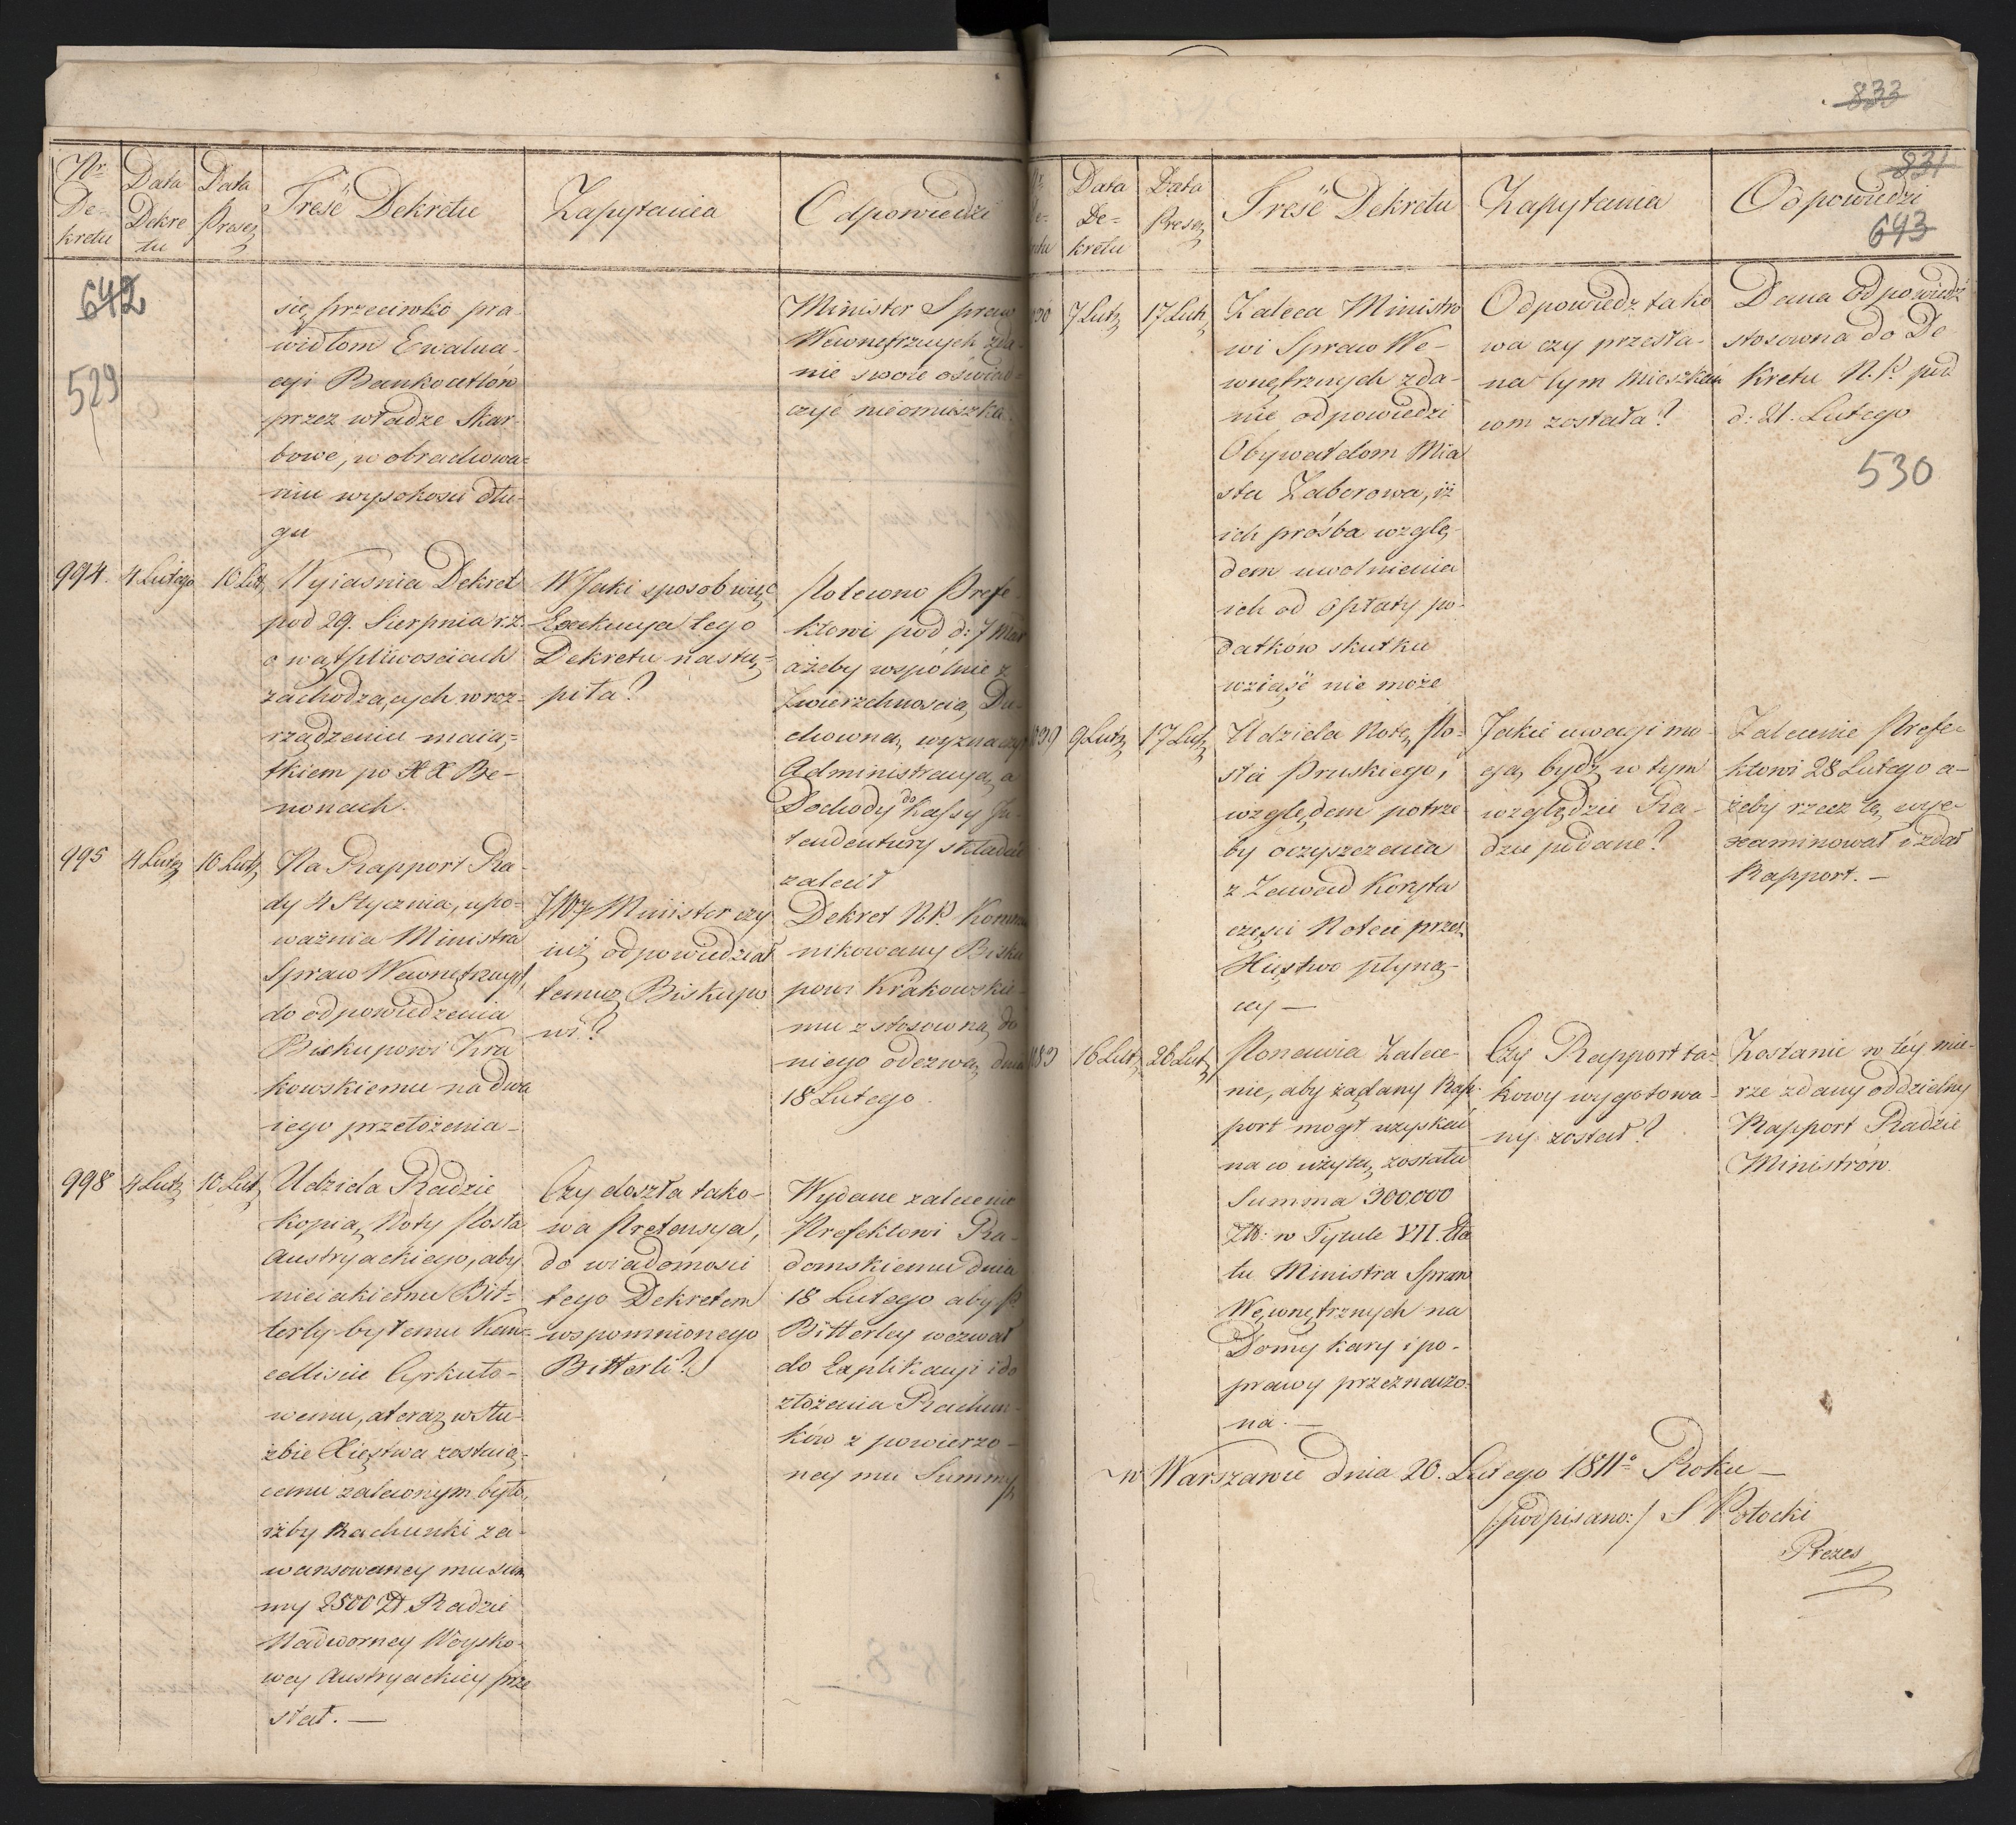 Nr
De-
kretu
Data
Dekre
tu
Data
Prese
Treść Dekretu
Zapytania
Odpowiedzi
642
529
się przeciwko pra-
widłom Ewalua-
cyi Bankocetlów
przez władze Skar-
bowe, w obrachowa=
niu wysokości dłu-
gu
Minister Spraw
Wewnętrznych zda-
nie swoie oświad=
czyć nieomieszka.
994.
4 Lutego
10 Lut.
Wyiaśnia Dekret
pod 29. Sierpnia r.z.
o wątpliwościach
zachodzących w roz-
rządzeniu maią=
tkiem po XX Be-
nonach.
W Jaki sposob więc
Exekucya tego
Dekretu nastą=
piła?
Polecono Prefe-
ktowi pod d: 7 Mar
ażeby wspólnie z
Zwierzchnością Du-
chowną wyznaczył
Administracyą, a
Dochody do Kassy In-
tendentury składać
zalecił
995
4 Lut.
10 Lut.
Na Rapport Ra-
dy 4 Stycznia, upo-
ważnia Ministra
Spraw Wewnętrznych,
do odpowiedzenia
Biskupowi Kra
kowskiemu na dwa
iego przełożenia-
JW. Minister czy
iuż odpowiedział
temuż Biskupo
wi?
Dekret N.P. Kommu
nikowany Bisku
powi Krakowskie-
mu z stosowną do
niego odezwą dnia
18 Lutego.
998
4 Lut.
10 Lut.
Udziela Radzie
Kopią Noty Posła
Austryackiego, aby
nieiakiemu Bit=
terly byłemu Kan=
celliście Cyrkuło-
wemu, a teraz w słu-
żbie Xięstwa zostaią=
cemu zaleconym było,
iżby Rachunki za-
wansowaney mu sum
my 2500 Zł. Radzie
Nadworney Woysko-
wey Austryackiey prze
słał. —
Czy doszła tako-
wa Pretensya,
do wiadomości
tego Dekretem
wspomnionego
Bitterli?
Wydane zalecenie
Prefektowi Ra-
domskiemu dnia
18 Lutego aby P.
Bitterley wezwał
do Explikacyi i do
złożenia Rachun-
ków z powierzo-
ney mu Summy
833
831
Data
De=
kretu
Data
Prese
Treść Dekretu
Zapytania
Odpowiedzi
643
7 Lut.
17 Lut.
Zaleca Ministro
wi Spraw We-
wnętrznych zda-
nie odpowiedzi
Obywatelom Mia
sta Zaborowa, iż
ich prośba wzglę-
dem uwolnienia
ich od opłaty po-
datków skutku
wziąść nie może
Odpowiedz tako
wa czy przesła-
na tym Mieszkań
com została?
Dana Odpowiedź
stosowna do De
kretu N.P. pod
d: 21. Lutego
530
9 Lut.
17 Lut.
Udziela Notę Po-
sła Pruskiego,
względem potrze
by oczyszczenia
z Zawad Koryta
części Noteci przez
Xięstwo płyną-
cey —
Jakie uwagi mo-
gą bydź w tym
względzie Ra-
dzie podane?
Zalecenie Prefe-
ktowi 28 Lutego a-
żeby rzecz tę wye-
xaminował i zdał
Rapport. —
16 Lut.
26 Lut.
Ponawia Zalece-
nie, aby żądany Rap-
port mogł uzyskać
na co użytą została
Summa 300.000
Zł: w Tytule VII. Eta
tu Ministra Spraw
Wewnętrznych na
Domy kary i po-
prawy przeznaczo-
na. —
Czy Rapport ta-
kowy wygotowa-
ny został?
Zostanie w tey mie-
rze zdany oddzielny
Rapport Radzie
Ministrów.
w Warszawie dnia 20. Lutego 1811o Roku —
/:podpisano:/ S Potocki
Prezes